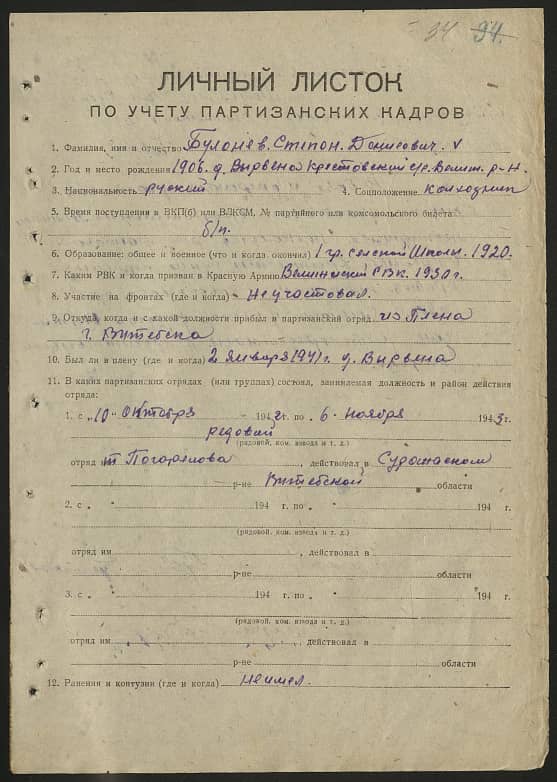 34 94.
ЛИЧНЫЙ ЛИСТОК
ПО УЧЕТУ ПАРТИЗАНСКИХ КАДРОВ
1. Фамилия, имя и отчество Степон. Донисович. v
2. Год и место рождения 1906. д. Крестовский с/с. Велиж. р-н.
3. Национальность руский 4. Соцположение Колхозник
5. Время поступления в ВКП(б) или ВЛКСМ, № партийного или комсомольского билета
б/п.
6. Образование: общее и военное (что и когда окончил) 1 гр. селской Школы. 1920.
7. Каким РВК и когда призван в Красную Армию Велижский РВК. 1930 г.
8. Участие на фронтах (где и когда) - Неучастовал.
9. Откуда, когда и с какой должности прибыл в партизанский отряд из Плена
г. Витебска
10. Был ли в плену (где и когда) 2 Января 1941 г. д.
11. В каких партизанских отрядах (или группах) состоял, занимлемая должность и район действия
отряда:
1. с „10" Октября 1942 г. по „ 6 - ноября 1943 г.
редовай
(рядовой, ком. взвода и т. д.)
отряд им , действовал в
р-не Витебской области
2. с „ " 194 г. по „ " 194 г.
(рядовой. ком. взвода и т. д.)
отряд им , действовал в
р-не области
3. с „ " 194 г. по „ " 194 г.
(рядовой, ком. взвода и т. д.)
отряд им , действовал в
р-не области
12. Ранения и контузии (где и когда) неимел.